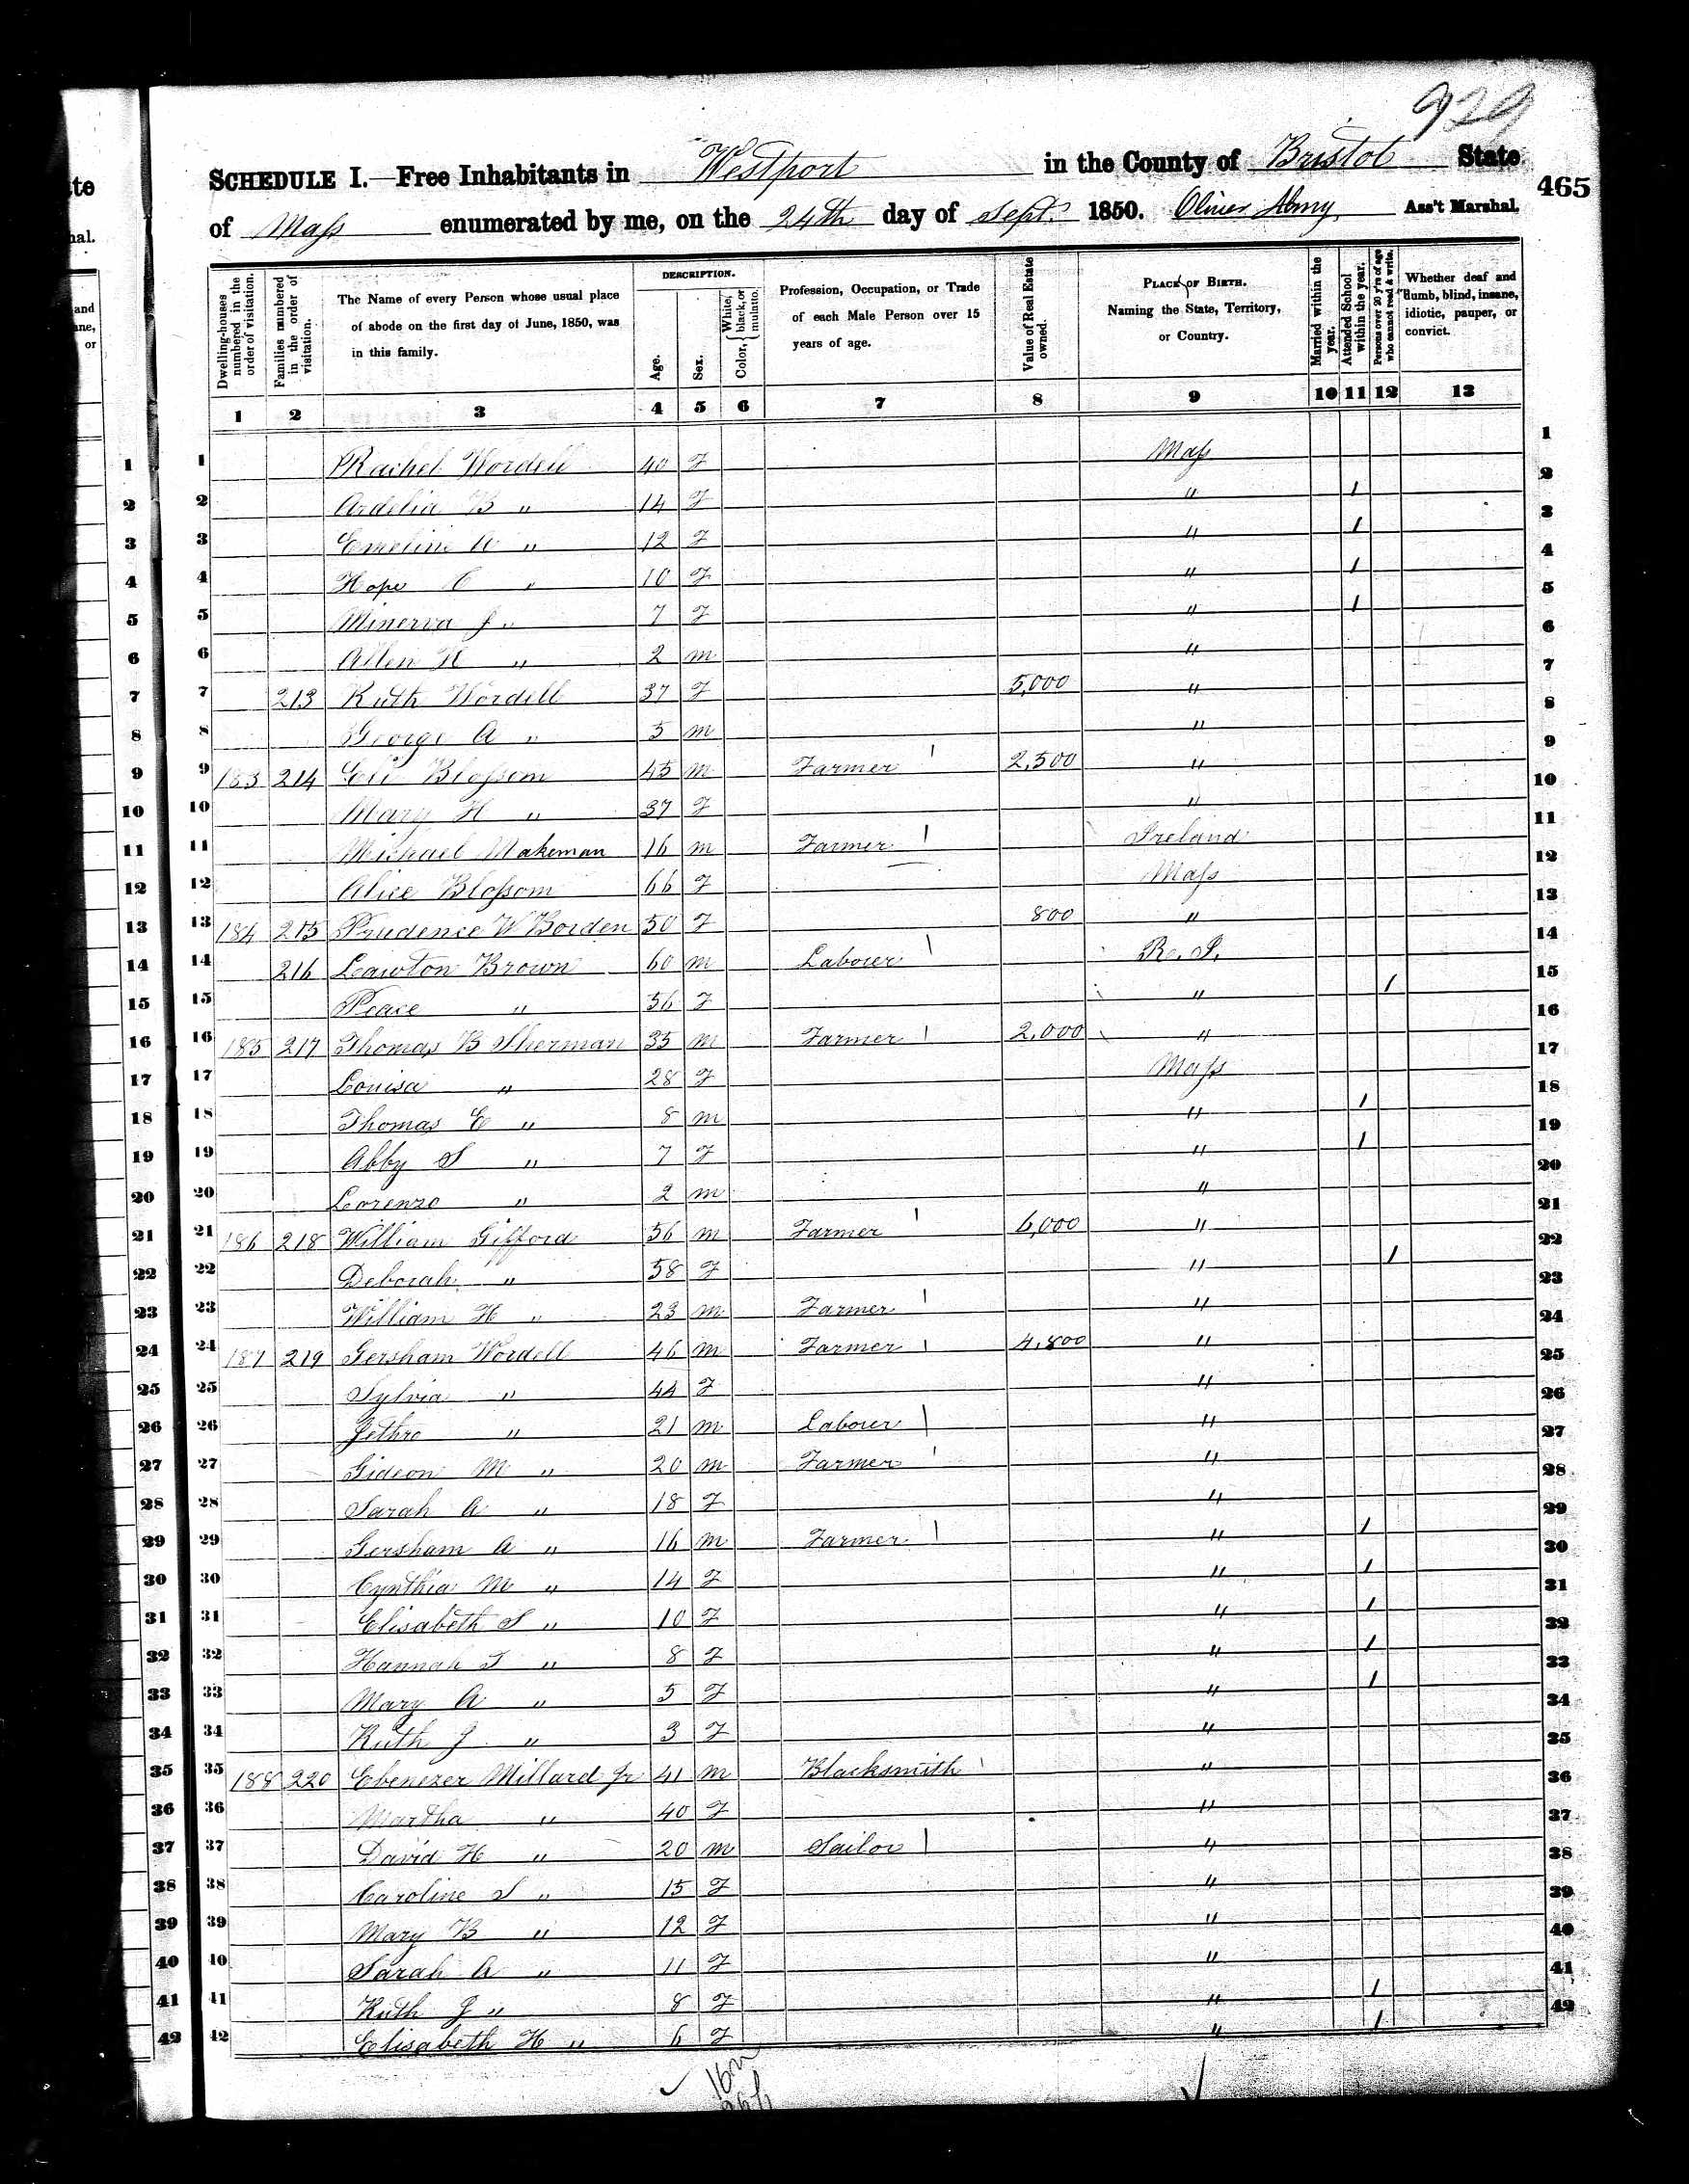 929
SCHEDULE I.—Free Inhabitants in Westport in the County of Bristol State
465
of Mass enumerated by me, on the 24th day of Sept. 1850. Oliver Ass't Marshal.
Dwelling-houses numbered in the order of visitation.
Families numbered in the order of visitation.
The Name of every Person whose usual place of abode on the first day of June, 1850, was in this family.
DESCRIPTION.
Age.
Sex.
Color, { White, black, or mulatto.
Profession, Occupation, or Trade of each Male Person over 15 years of age.
Value of Real Estate owned.
PLACE OF BIRTH. Naming the State, Territory, or Country.
Married within the year.
Attended School within the year.
Persons over 20 y'rs of age who cannot read & write.
Whether deaf and dumb, blind, insane, idiotic, pauper, or convict.
1 2 3 4 5 6 7 8 9 10 11 12 13
1 Rachel Wordell 40 F Mass 1
2 Ardelia B " 14 F " 1 2
3 Emeline " 12 F " 1 3
4 Hope C " 10 F " 1 4
5 Minerva J " 7 F " 1 5
6 Allen H " 2 m " 6
7 213 Ruth Wordell 37 F 5,000 " 7
8 George A " 5 m " 8
9 183 214 Eli Blossom 45 m Farmer 1 2,500 " 9
10 Mary H " 37 F " 10
11 Michael Makeman 16 m Farmer 1 Ireland 11
12 Alice Blossom 66 F Mass 12
13 184 215 Prudence W Borden 50 F 800 " 13
14 216 Lawton Brown 60 m Labourer 1 R. I. 14
15 Peace " 56 F " 1 15
16 185 217 Thomas B Sherman 35 m Farmer 1 2,000 " 16
17 Louisa " 28 F Mass 17
18 Thomas E " 8 m " 1 18
19 Abby S " 7 F " 1 19
20 Lorenzo " 2 m " 20
21 186 218 William Gifford 56 m Farmer 1 6,000 " 21
22 Deborah " 58 F " 1 22
23 William H " 23 m Farmer 1 " 23
24 187 219 Gersham Wordell 46 m Farmer 1 4,800 " 24
25 Sylvia " 44 F " 25
26 Jethro " 21 m Labourer 1 " 26
27 Gideon M " 20 m Farmer 1 " 27
28 Sarah A " 18 F " 28
29 Gersham A " 16 m Farmer 1 " 1 29
30 Cynthia M " 14 F " 1 30
31 Elisabeth S " 10 F " 1 31
32 Hannah T " 8 F " 1 32
33 Mary A " 5 F " 1 33
34 Ruth J " 3 F " 34
35 188 220 Ebenezer Millard Jr 41 m Blacksmith 1 " 35
36 Martha " 40 F " 36
37 David H " 20 m Sailor 1 " 37
38 Caroline S " 15 F " 38
39 Mary B " 12 F " 39
40 Sarah A " 11 F " 40
41 Ruth J " 8 F " 1 41
42 Elisabeth H " 6 F " 1 42
16m
26f